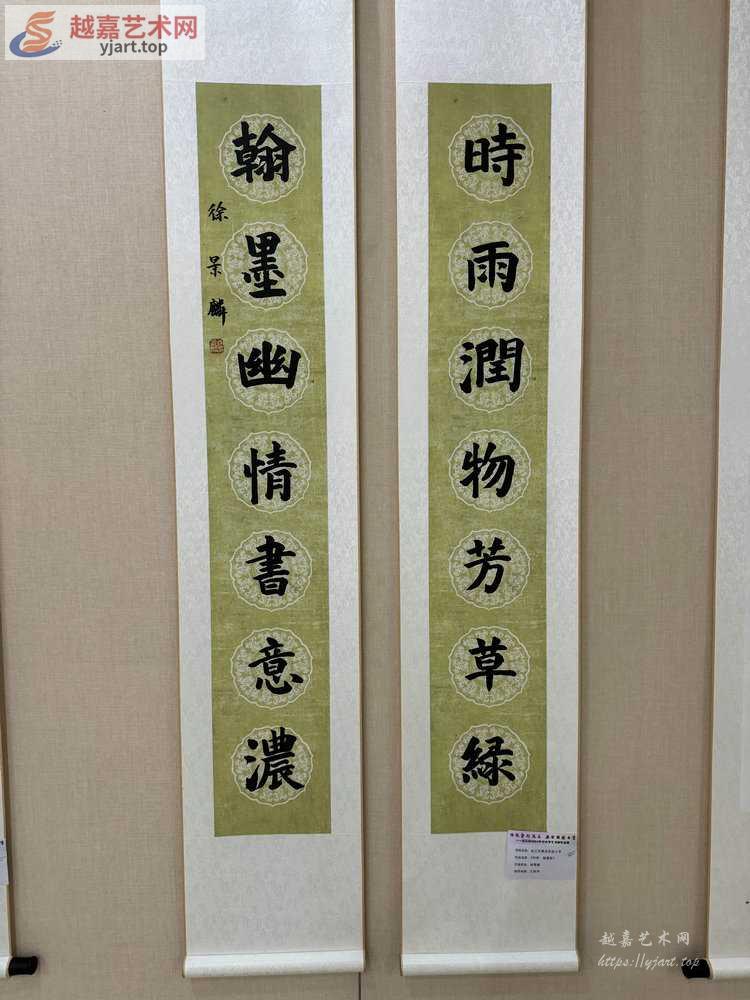 越嘉艺术网
yjart.top
時雨潤物芳草綠
翰墨幽情書意濃
徐景麟
越嘉艺术网
https://yjart.top